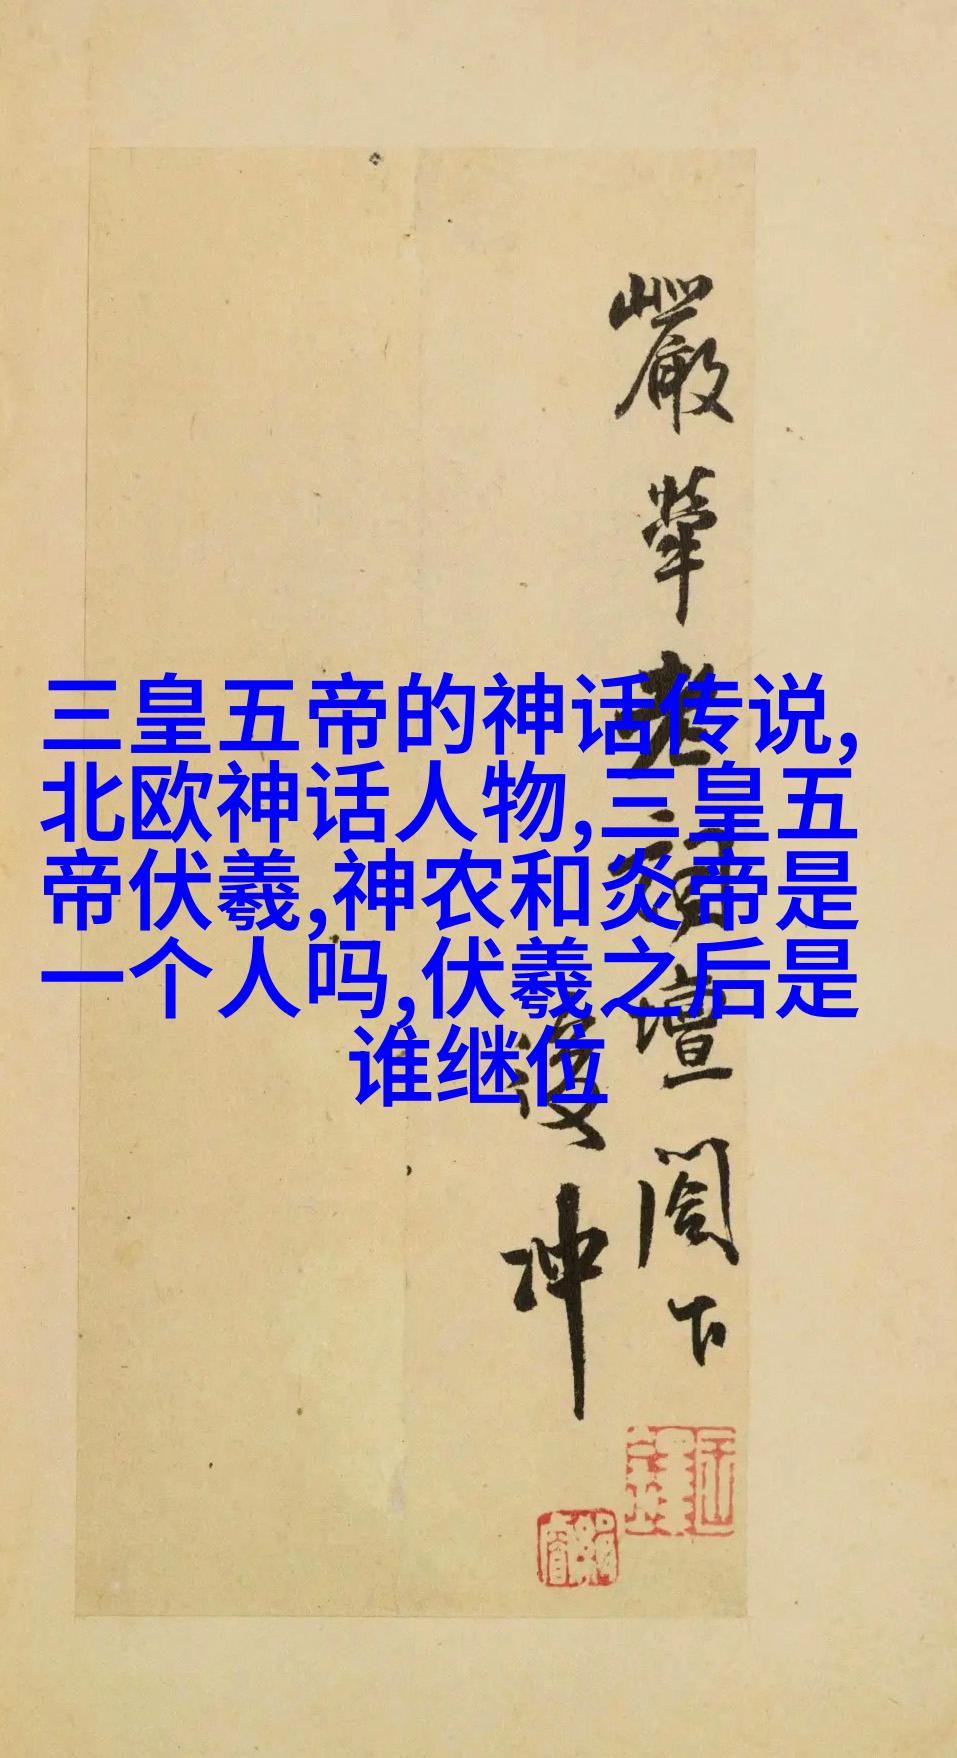 三皇五帝的神话传说,
北欧神话人物,三皇五
帝伏羲,神农和炎帝是
一个人吗,伏羲之后是
谁继位
嚴犖老詞壇閣下
冲